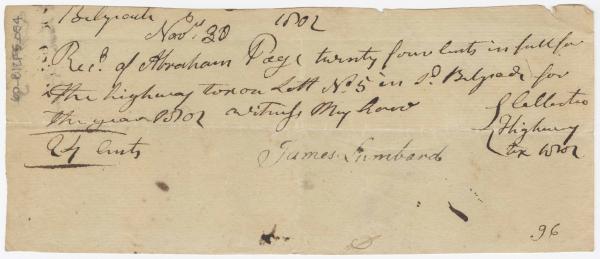 Belgrade
Novr 30 1802
Recd of Abraham Page twenty four Cents in full for
the highway tax on Lott No 5 in sd Belgrade for
the year 1802 witness My hand
24 Cents
James Lumbard
Collector
Highway
tax 1802
.96